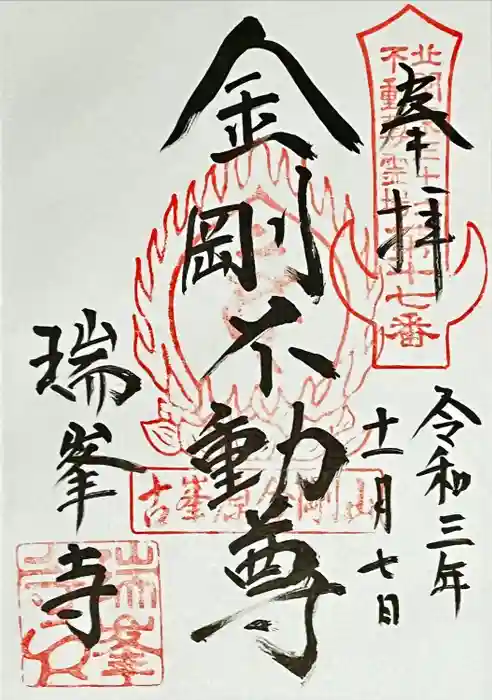 奉拝
令和三年
十一月七日
金剛不動尊
瑞峯寺
北関東三十六
不動尊霊場第十七番
古峯原金剛山
瑞峯